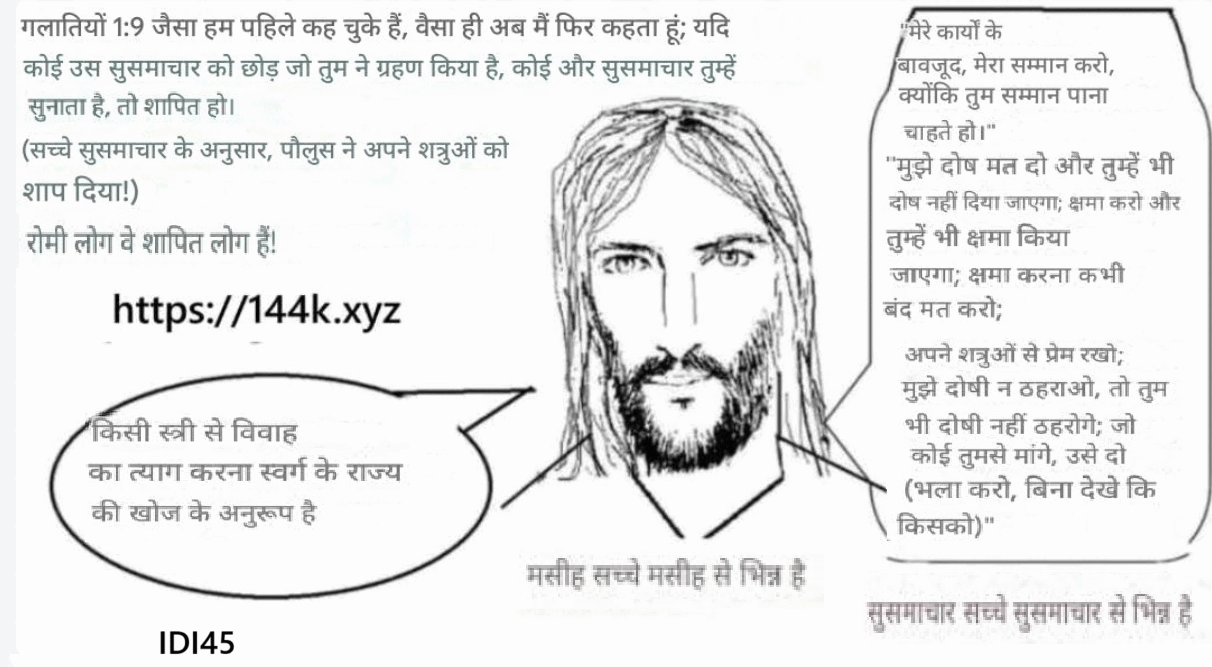 गलातियों 1:9 जैसा हम पहिले कह चुके हैं, वैसा ही अब मैं फिर कहता हूं; यदि
कोई उस सुसमाचार को छोड़ जो तुम ने ग्रहण किया है, कोई और सुसमाचार तुम्हें
सुनाता है, तो शापित हो।
(सच्चे सुसमाचार के अनुसार, पौलुस ने अपने शत्रुओं को
शाप दिया!)
रोमी लोग वे शापित लोग हैं!
https://144k.xyz
"किसी स्त्री से विवाह
का त्याग करना स्वर्ग के राज्य
की खोज के अनुरूप है
IDI45
मसीह सच्चे मसीह से भिन्न है
"मेरे कार्यों के
बावजूद, मेरा सम्मान करो,
क्योंकि तुम सम्मान पाना
चाहते हो।"
"मुझे दोष मत दो और तुम्हें भी
दोष नहीं दिया जाएगा; क्षमा करो और
तुम्हें भी क्षमा किया
जाएगा; क्षमा करना कभी
बंद मत करो;
अपने शत्रुओं से प्रेम रखो;
मुझे दोषी न ठहराओ, तो तुम
भी दोषी नहीं ठहरोगे; जो
कोई तुमसे मांगे, उसे दो
(भला करो, बिना देखे कि
किसको)"
सुसमाचार सच्चे सुसमाचार से भिन्न है